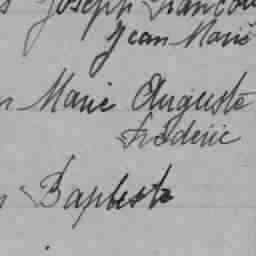 Joseph Francois
Jean Marie
Marie Auguste
Frederic
Baptiste